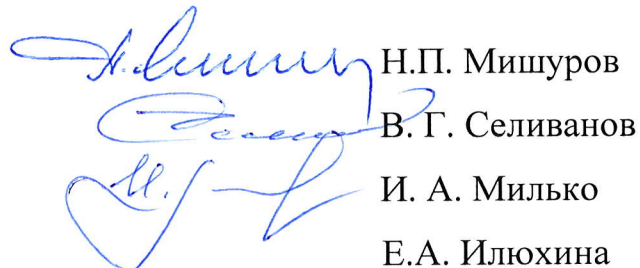 Н.П. Мишуров
В. Г. Селиванов
И. А. Милько
Е.А. Илюхина